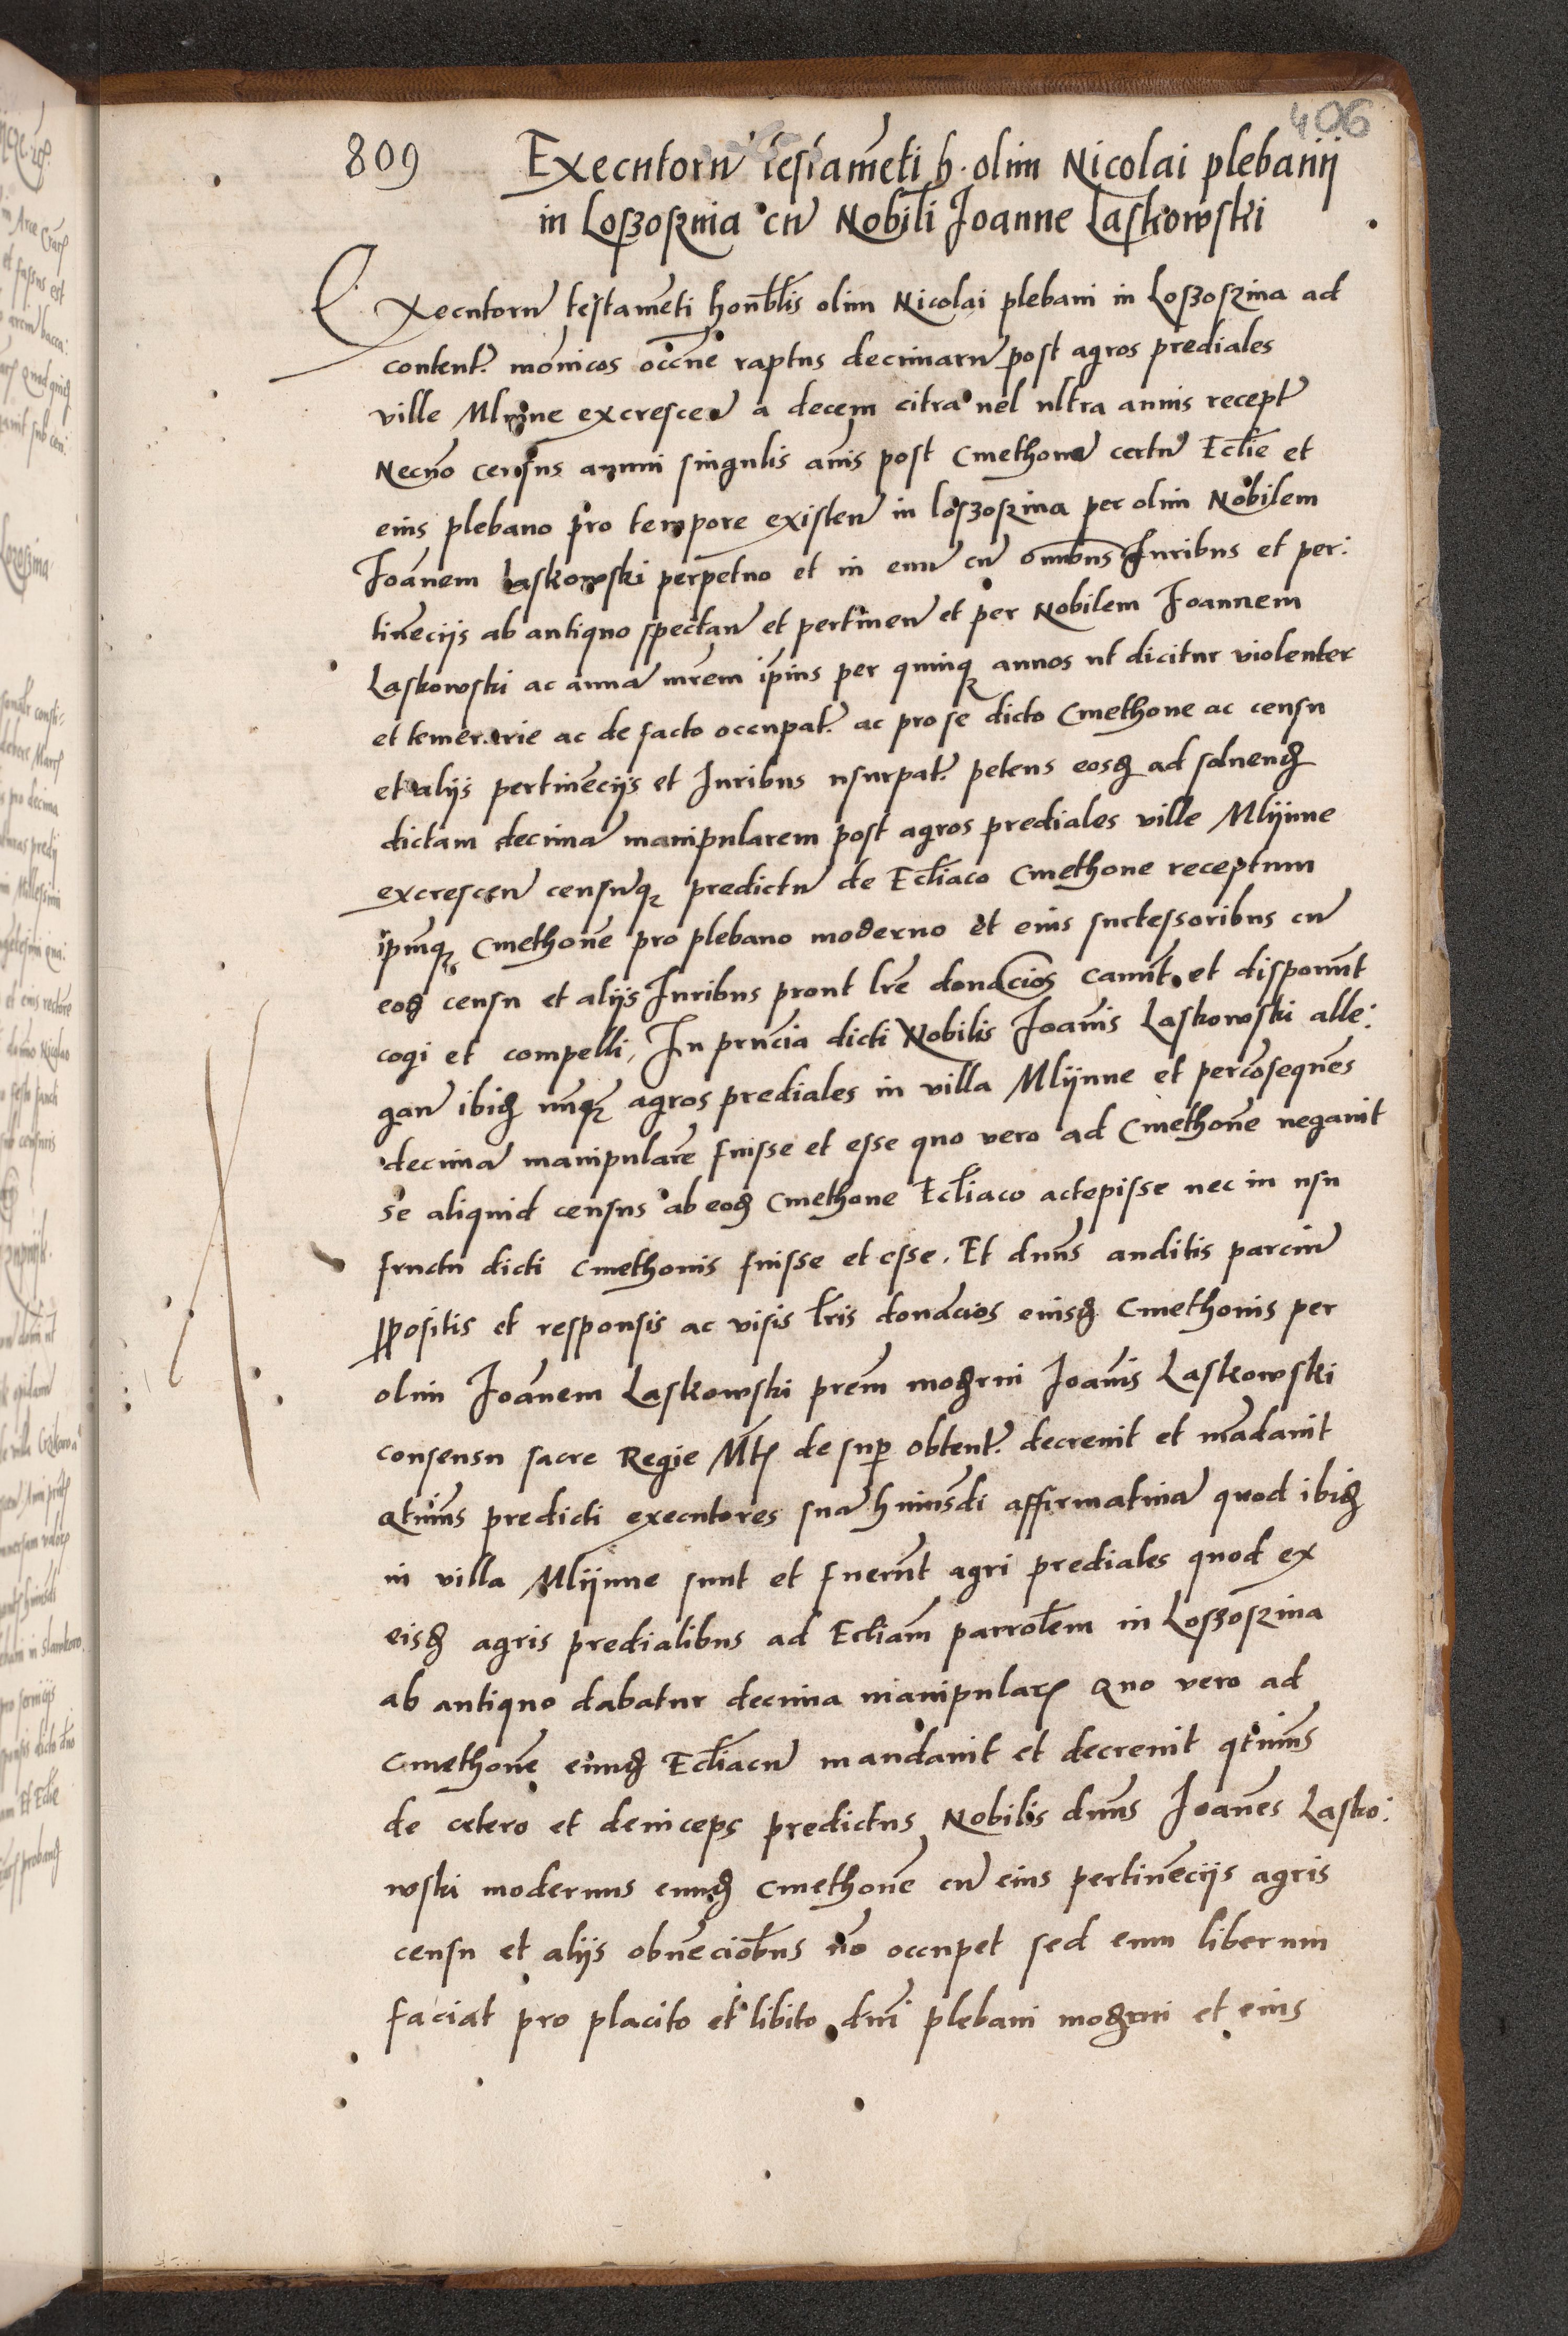 406
809 Executoru testameti h. olim Nicolai plebanij
in Loszoszina cu Nobili Joanne Laskowski
Executoru testameti honblis olim Nicolai plebani in Loszoszina ad
content. monicos occne raptus decimaru post agros prediales
ville Mlynne excrescen a decem citra vel ultra annis recept
Necno census annui singulis anis post Cmethone certu Ecclie et
eius plebano pro tempore existen in loszoszina per olim Nobilem
Joanem Laskowski perpetuo et in evu cu omnibus Juribus et per:
tineciis ab antiquo spectan et pertinen et per Nobilem Joannem
Laskowski ac anna mrem ipius per quinq annos ut dicitur violenter
et temerarie ac de facto occupat. ac pro se dicto Cmethone ac censu
et alijs pertineciis et Juribus usurpat. petens eosd ad solvend
dictam decima manipularem post agros prediales ville Mlijnne
excrescen censuq predictu de Eccliaco Cmethone receptum
ipmq Cmethone pro plebano moderno et eius successoribus cu
eod censu et alijs Juribus prout lre donacios canunt et disponunt
cogi et compelli, In prncia dicti Nobilis Joanis Laskowski alle:
gan ibid nunq agros prediales in villa Mlijnne et percosequens
decima manipulare fuisse et esse quo vero ad Cmethone negavit
se aliquid census ab eod Cmethone Eccliaco accepisse nec in usu
fructu dicti Cmethonis fuisse et esse. Et dnus auditis parciu
propositis et responsis ac visis lris donacios eiusd Cmethonis per
olim Joanem Laskowski prem moderni Joanis Laskowski
consensu sacre Regie Mtis desup obtent. decrevit et madavit
qtinus predicti executores sua huiusdi affirmativa quod ibid
in villa Mlijnne sunt et fuerut agri prediales quod ex
eisd agris predialibus ad Eccliam parrolem in Loszoszina
ab antiquo dabatur decima manipularis Quo vero ad
Cmethone eund Eccliacu mandavit et decrevit qtinus
de cetero et deinceps predictus Nobilis dnus Joanes Lasko:
wski modernus eund Cmethone cu eius pertineciis agris
censu et alijs obveciobus no occupet sed eum liberum
faciat pro placito et libito dni plebani moderni et eius